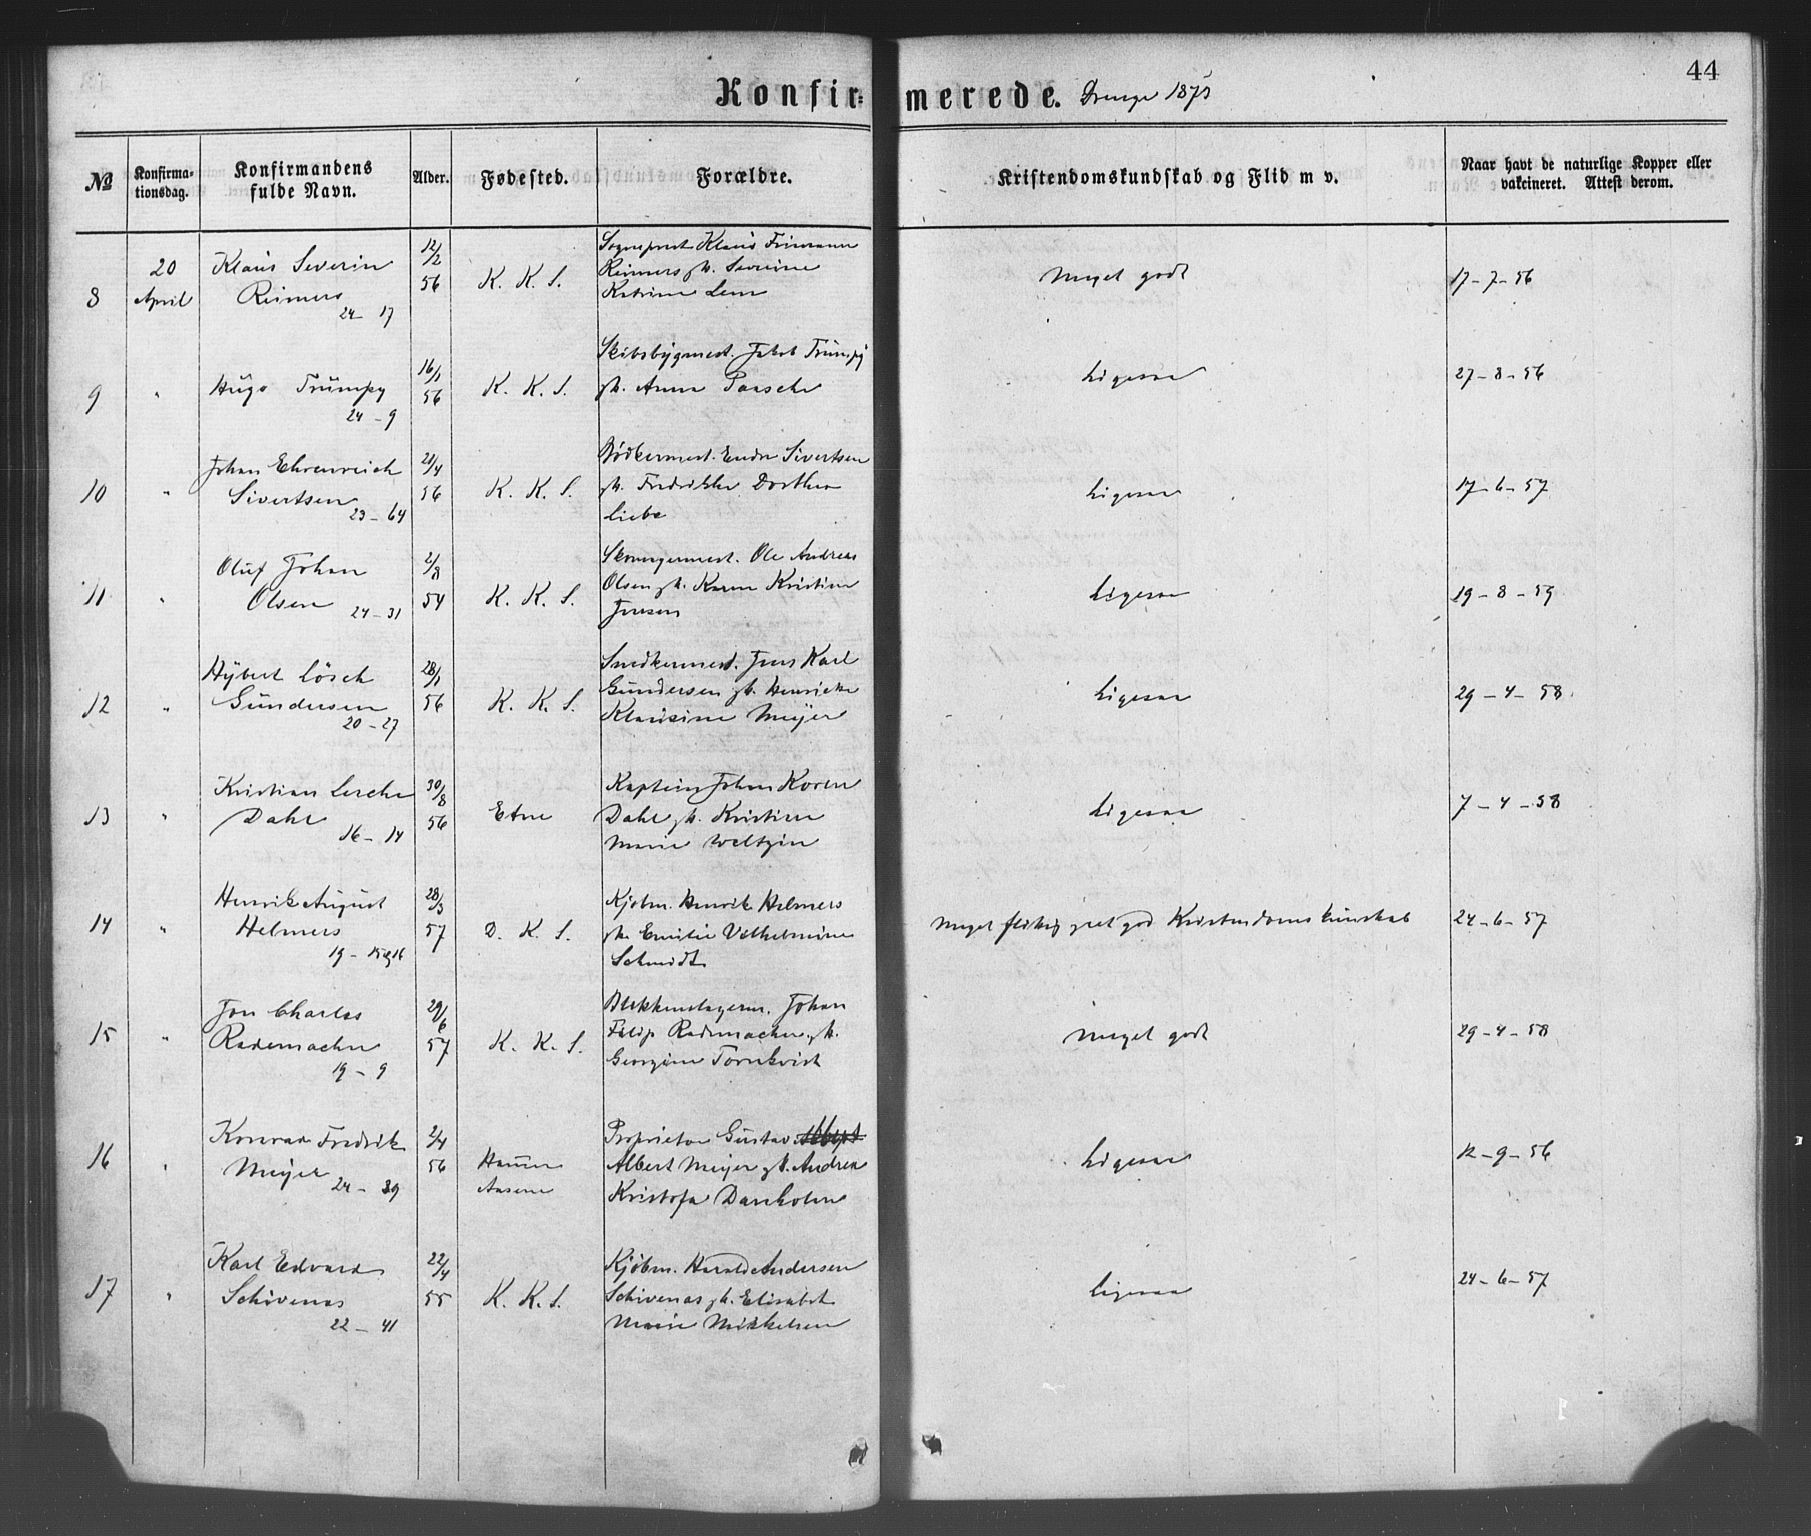 44
Konfirmerede. Drenge 1873
№
Konfirmationsdag.
Konfirmandens fulde Navn.
Alder.
Fødested.
Forældre.
Kristendomskundskab og Flid m v.
Naar havt de naturlige Kopper eller vakcineret. Attest derom.
8
20 April
Klaus Severin
Reimers
24 - 17
12/2 56
K. K. S.
Sogneprest Klaus Frimann
Reimers gh. Severine
Katrine Lem
Meget godt
17-7-56
9
"
Hugo Trumpy
24-9
16/1 56
K. K. S.
Skibsbygmest. Jakob Trumpy
gh. Anna Paasche
Ligesaa
27-8-56
10
"
Johan Ehrenreich
Sivertsen
23-64
21/4 56
K. K. S.
Bødkermest. Endre Sivertsen
gh. Fredrikke Dorthea
Liebe
Ligesaa
17-6-57
11
"
Oluf Johan
Olsen 24-31
2/8 54
K. K. S.
Skomagermest. Ole Andreas
Olsen gh. Karen Kristine
Jensen
Ligesaa
19-8-59
12
"
Hybert Lösch
Gundersen
20-27
28/1 56
K. K. S.
Snedkermest. Jens Karl
Gundersen gh. Henricke
Klausine Meyer
Ligesaa
29-4-58
13
"
Kristian Lerche
Dahl
16-14
30/8 56
Etne
Kaptein Johan Koren
Dahl gh. Kristine
Marie Weltzin
Ligesaa
7-4-58
14
"
Henrik August
Helmers
19 - 15 og 16
28/3 57
D. K. S.
Kjøbm. Henrik Helmers
gh. Emilie Vilhelmine
Schmidt
Meget flittig god Kristendomskunskab
24-6-57
15
"
Jon Charles
Rademacher
19 - 9
29/6 57
K. K. S.
Blikkenslagerm. Johan
Filip Rademacher gh.
Georgine Tornkvist
Meget godt
29-4-58
16
"
Konrad Fredrik
Meyer 24-39
2/4 56
Hammer
Aasene
Proprietær Gustav
Albert Meyer gh. Andrea
Kristofa Damholm
Ligesaa
12-9-56
17
"
Karl Edvard
Schivenas
22-41
22/4 55
K. K. S.
Kjøbm. Harald Andersen
Schivenas gh. Elisabet
Marie Mikkelsen
Ligesaa
24-6-57